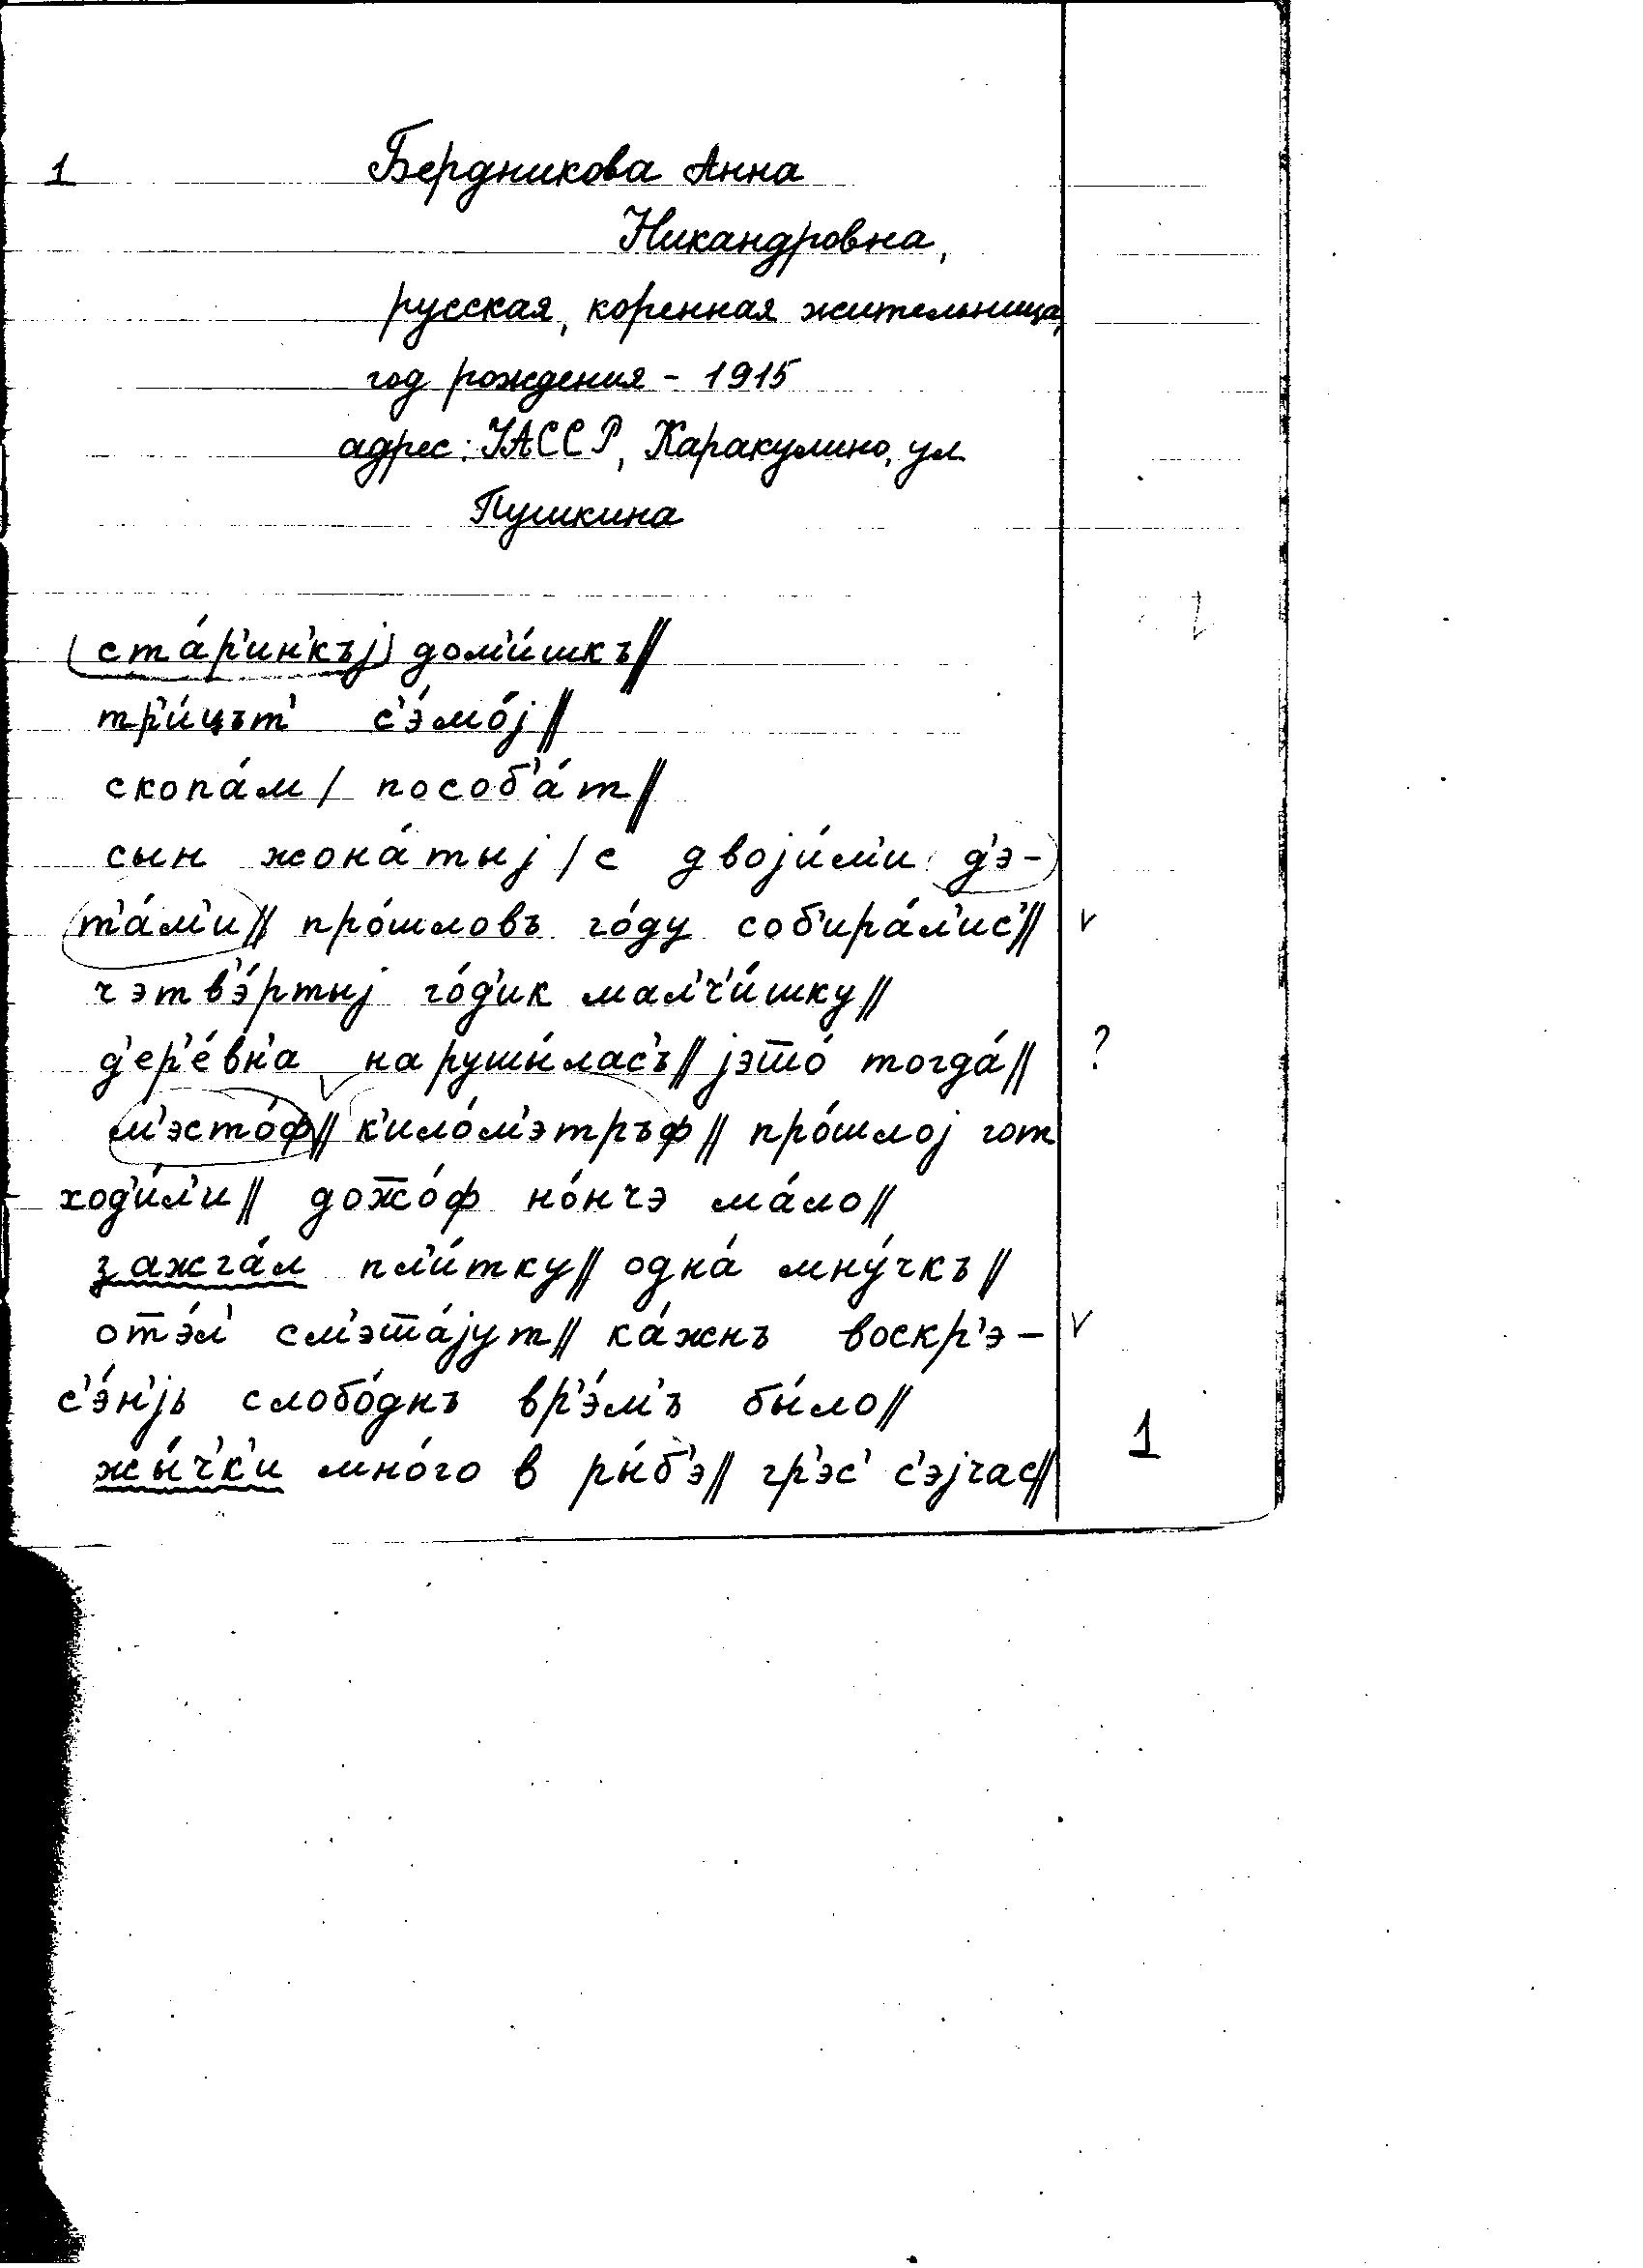 1 Бердникова Анна
Никандровна,
русская, коренная жительница,
год рождения - 1915
адрес: УАССР, Каракулино, ул.
Пушкина
(ста́р'ин'къj) дом'и́шкъ//
тр'и́цът' с'э́мо́j//
скопа́м / пособ'а́т//
сын жона́тыj / с двоjи́м'и д'э-
т'а́м'и// про́шловъ го́ду соб'ира́л'ис'// v
чэтв'э́ртыj го́д'ик мал'ч'и́шку//
д'ер'е́вн'а нарушы́лас'ъ// jэто́ тогда́// ?
м'эсто́ф// к'ило́м'этръф// про́шлоj гот
ход'и́л'и// дожо́ф но́нчэ ма́ло//
зажга́л пл'и́тку// одна́ мну́чкъ//
отэ́л' см'эта́jут// ка́жнъ воскр'э- v
с'э́н'jь слобо́днъ вр'э́м'ъ бы́ло//
жы́ч'к'и мно́го в ры́б'э// гр'эс' с'эjчас//
1